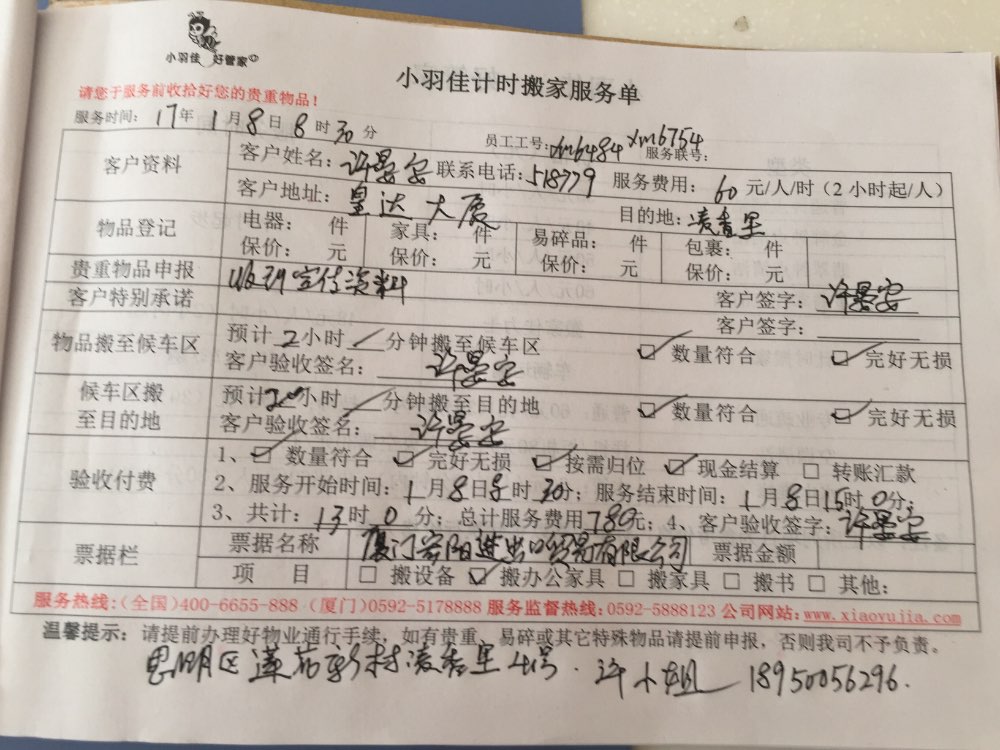 小羽佳 好管家
小羽佳计时搬家服务单
请您于服务前收拾好您的贵重物品！
服务时间：17年1月8日8时30分 员工工号：xm6484 xm6754 服务联号：
客户资料 客户姓名：许晏安 联系电话：518779 服务费用：60元/人/时（2小时起/人）
客户地址：皇达大厦 目的地：凌香里
物品登记 电器： 件 家具： 件 易碎品： 件 包裹： 件
保价： 元 保价： 元 保价： 元 保价： 元
贵重物品申报 宣传资料 客户签字：许晏安
客户特别承诺 客户签字：
物品搬至候车区 预计2小时/分钟搬至候车区 ☑数量符合 ☑完好无损
客户验收签名：许晏安
候车区搬至目的地 预计2小时/分钟搬至目的地 ☑数量符合 ☑完好无损
客户验收签名：许晏安
验收付费 1、☑数量符合 ☑完好无损 ☑按需归位 ☑现金结算 □转账汇款
2、服务开始时间：1月8日8时30分；服务结束时间：1月8日15时0分；
3、共计：13时0分；总计服务费用780元；4、客户验收签字：许晏安
票据栏 票据名称 厦门安阳进出口贸易有限公司 票据金额
项 目 □搬设备 ☑搬办公家具 □搬家具 □搬书 □其他：
服务热线：（全国）400-6655-888 （厦门）0592-5178888 服务监督热线：0592-5888123 公司网站：www.xiaoyujia.com
温馨提示：请提前办理好物业通行手续，如有贵重、易碎或其它特殊物品请提前申报，否则我司不予负责。
思明区莲花新村凌香里4号．许小姐 18950056296．